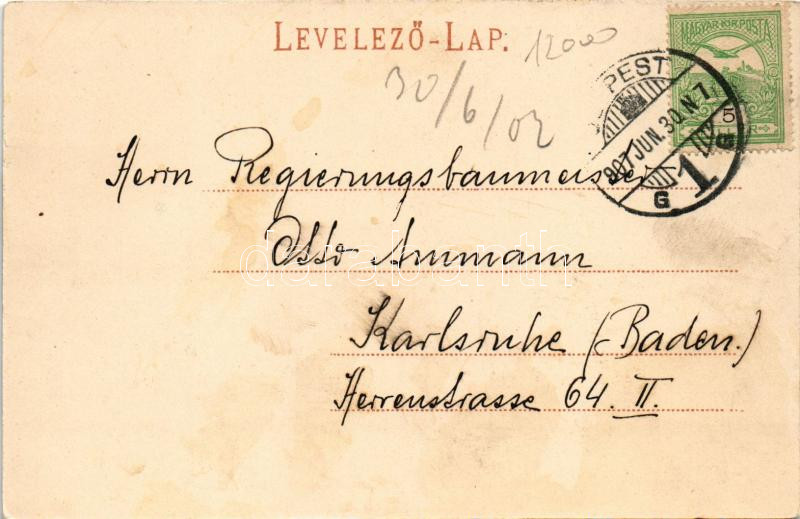 LEVELEZŐ-LAP.
12000
30/6/02
MAGYAR KIR. POSTA
5
PEST
907 JUN. 30. N 7
G
1
Herrn Regierungsbaumeister
Otto Ammann
Karlsruhe (Baden.)
Herrenstrasse 64. II.
darabanth